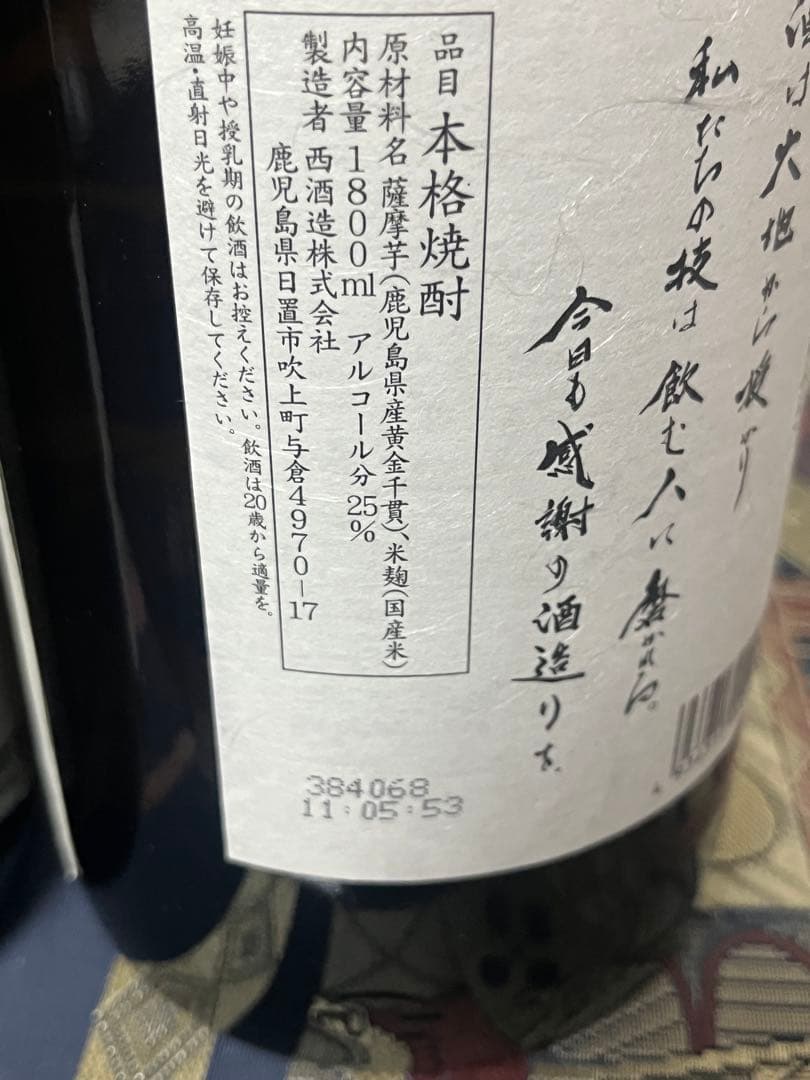 酒は大地から授かり
私たちの技は飲む人に磨かれる。
今日も感謝の酒造りを。
品目 本格焼酎
原材料名 薩摩芋(鹿児島県産黄金千貫)、米麹(国産米)
内容量 1800ml アルコール分25%
製造者 西酒造株式会社
鹿児島県日置市吹上町与倉4970-17
妊娠中や授乳期の飲酒はお控えください。飲酒は20歳から適量を。
高温・直射日光を避けて保存してください。
384068
11:05:53